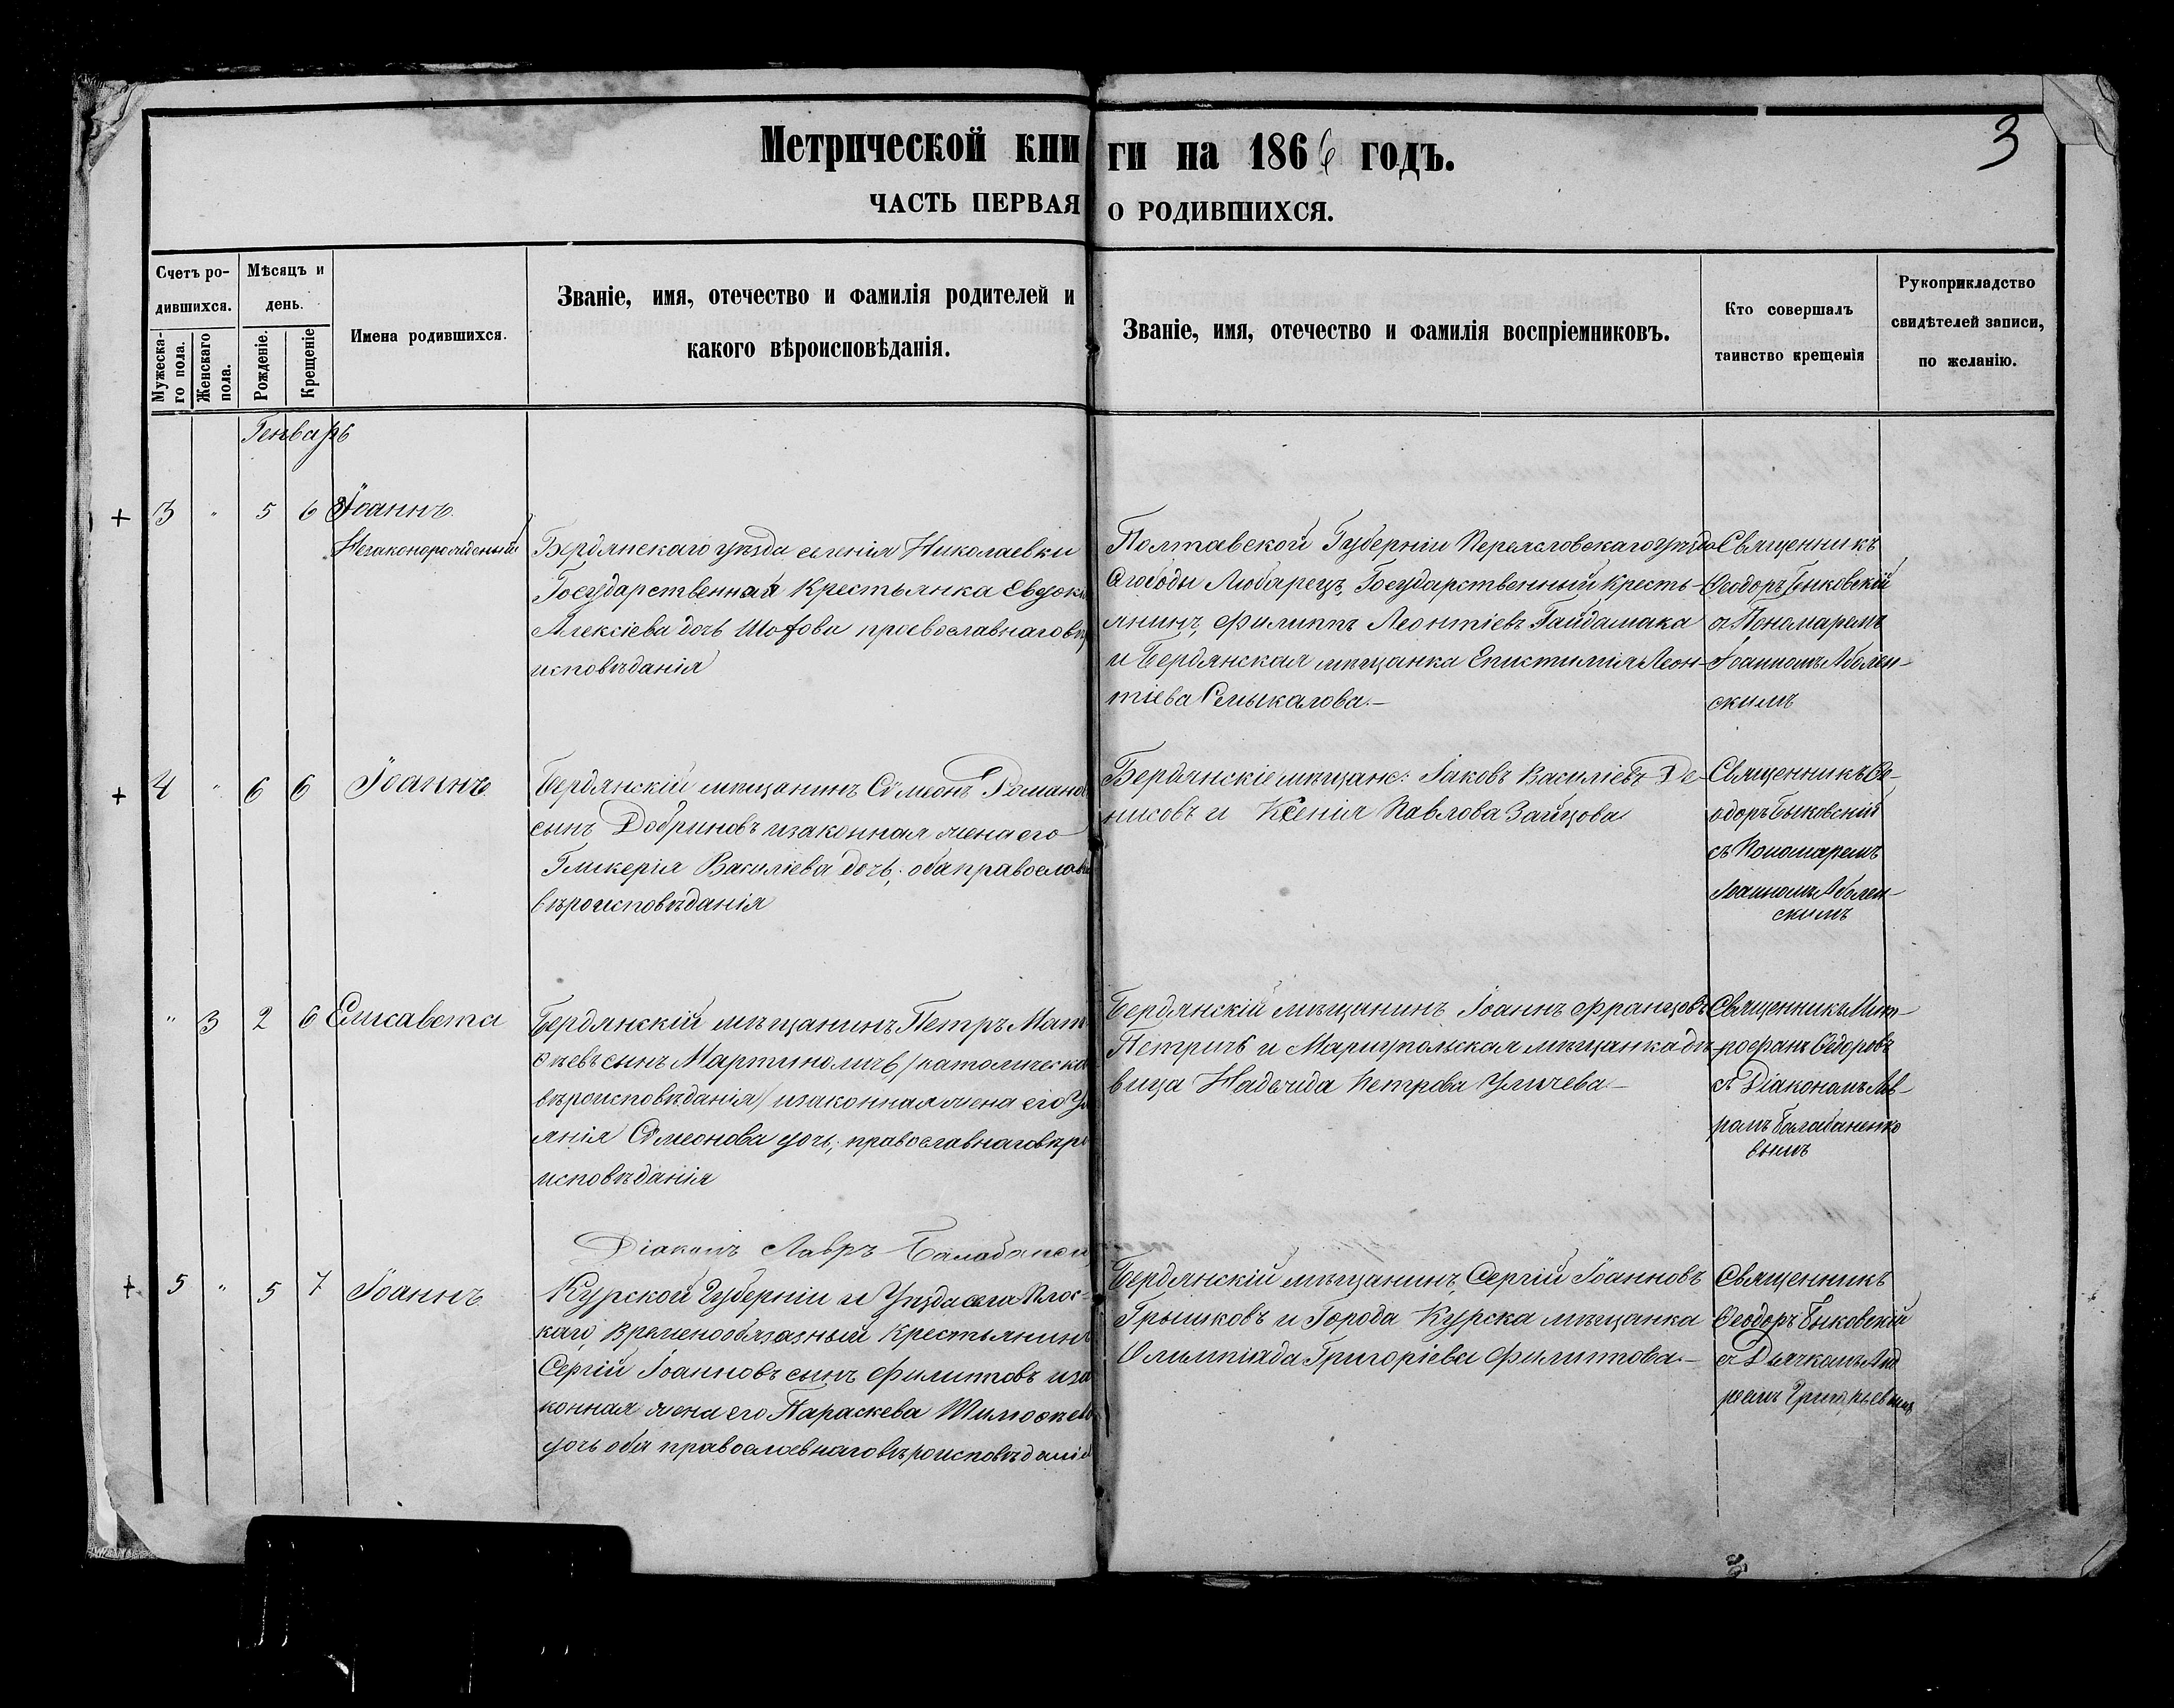 Метрической книги на 1866 годъ.
3
ЧАСТЬ ПЕРВАЯ О РОДИВШИХСЯ.
Счетъ ро-
дившихся.
Мужеска-
го пола.
Женскаго
пола.
Мѣсяцъ и
день.
Рожденіе.
Крещеніе
Имена родившихся.
Званіе, имя, отечество и фамилія родителей и
какого вѣроисповѣданія.
Званіе, имя, отечество и фамилія воспріемниковъ.
Кто совершалъ
таинство крещенія
Рукоприкладство
свидѣтелей записи,
по желанію.
Генварь
+ 3 " 5 6 Іоаннъ
Незаконорожденный
Бердянскаго уѣзда селенія Николаевки
Государственная Крестьянка Евдок
Алексіева дочь православнаго вѣ
исповѣданія
Полтавской Губерніи Переясловскаго уѣзда
Слободы Любарецъ, Государственный кресть-
янинъ, Филиппъ Леонтіевъ Гайдамака
и Бердянская мѣщанка Епистимія Леон-
тіева Смыкалова.–
Священникъ
Ѳеодоръ Быковскій
съ Пономаремъ
Іоанномъ Аболен-
скимъ
+ 4 " 6 6 Іоаннъ
Бердянскій мѣщанинъ Сѵмеонъ Романов
сынъ Добриновъ и законная жена его
Гликерія Василіева дочь; оба православ
вѣроисповѣданія
Бердянскіе мѣщане: Іаковъ Василіевъ Де-
нисовъ и Ксенія Павлова Зайцова
Священникъ Ѳе-
одоръ Быковскій
съ Пономаремъ
Іоанномъ Аболен-
скимъ
" 3 2 6 Елисавета
Бердянскій мѣщанинъ Петръ Мат
ѳѣевъ сынъ Мартинолич /католическа
вѣроисповѣданія/ и законная жена его Ул
янія Сѵмеонова дочь, православнаго вѣро
исповѣданія
Бердянскій мѣщанинъ Іоаннъ Францовъ
Петричъ и Маріупольская мѣщанка дѣ-
вица Надежда Петрова Уличева–
Священникъ Мит-
рофанъ Ѳедоровъ
съ Діакономъ Лав-
ромъ Балабаненко
вымъ
Діаконъ Лавръ
+ 5 " 5 7 Іоаннъ
Курской Губерніи и Уѣзда села Плос-
каго, Временообязаный Крестьянинъ
Сергій Іоанновъ сынъ Филиповъ и за
конная жена его Параскева Тимоѳѣев
дочь оба православнаго вѣроисповѣданія
Бердянскій мѣщанинъ, Сергій Іоанновъ
Грышковъ и Города Курска мѣщанка
Олимпіада Григоріева Филиппова.–
Священникъ
Ѳеодоръ Быковскій
съ Дьячкомъ Анд
реемъ Григорьевымъ